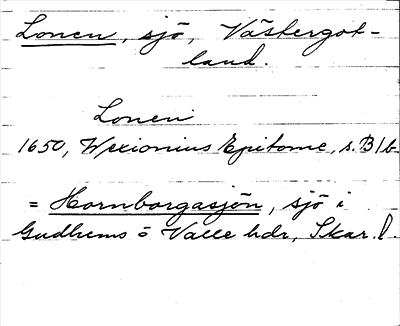 Lonen, sjö, Västergot-
land.
Lonen
1650, Wexionius Epitome, s. B1b
= Hornborgasjön, sjö i
Gudhems o Valle hdr, Skar. l.